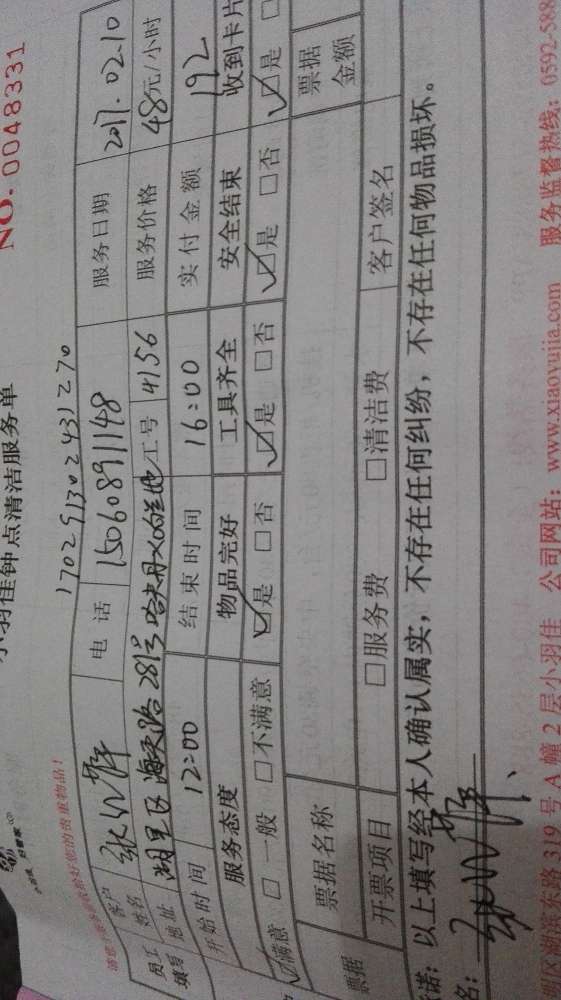 NO. 0048331
小羽佳钟点清洁服务单
17029130243127 0
客户姓名 电话 15060891148 服务日期 2017.02.10
员工填写 地址 湖里区海天路281号 工号 4156 服务价格 48元/小时
开始时间 12:00 结束时间 16:00 实付金额 192
服务态度 物品完好 工具齐全 安全结束 收到卡片
☑满意 □一般 □不满意 ☑是 □否 ☑是 □否 ☑是 □否 ☑是 □
票据名称 票据金额
票据 开票项目 □服务费 □清洁费 客户签名
诺：以上填写经本人确认属实，不存在任何纠纷，不存在任何物品损坏。
名：
湖滨东路319号A幢2层小羽佳 公司网站：www.xiaoyujia.com 服务监督热线：0592-588